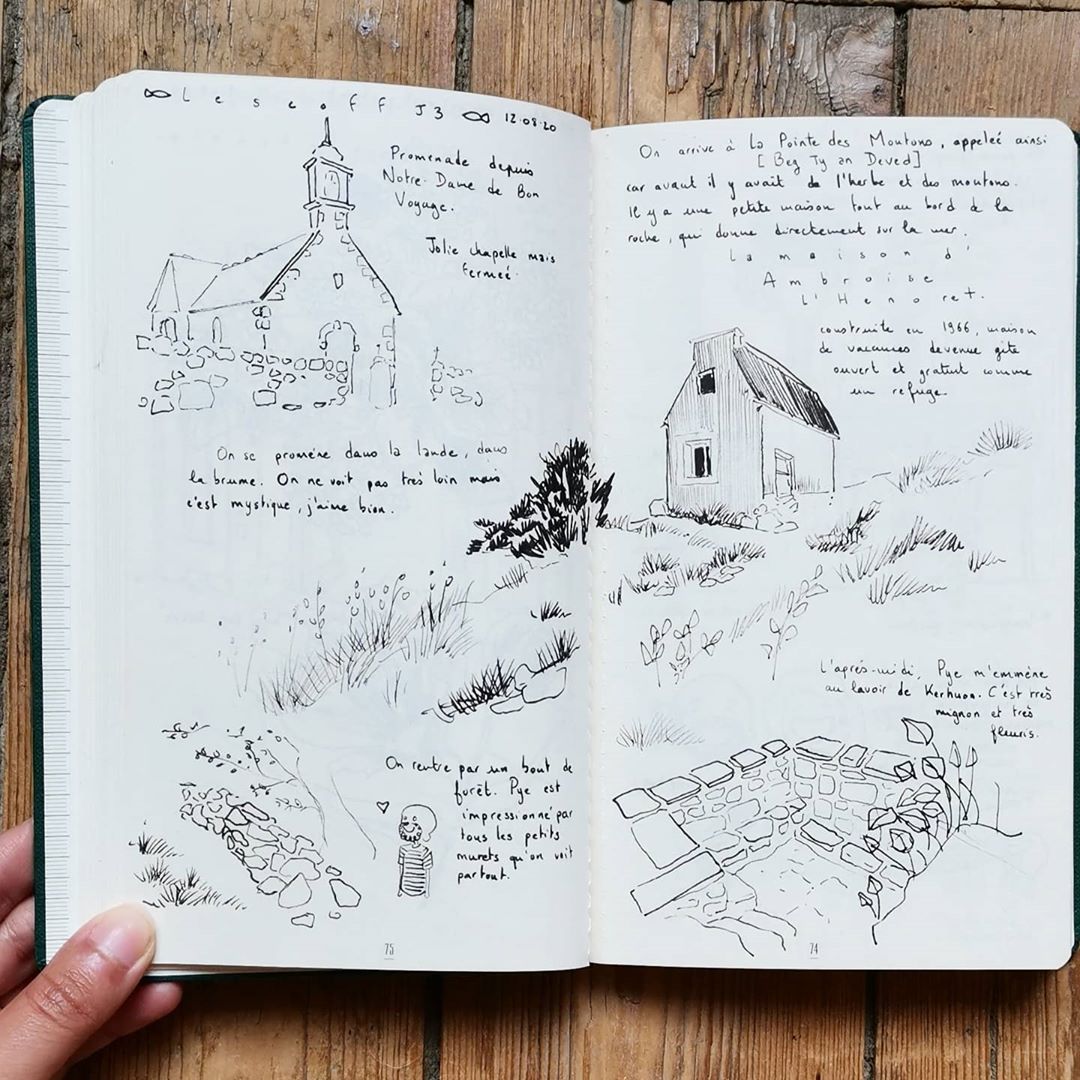 Lescoff J3 12.08.20
Promenade depuis
Notre-Dame de Bon
Voyage.
Jolie chapelle mais
fermeé.
On se promène dans la lande, dans
la brume. On ne voit pas très loin mais
c'est mystique, j'aime bien.
On rentre par un bout de
forêt. Pye est
impressionné par
tous les petits
murets qu'on voit
partout.
75
On arrive à la Pointe des Moutons, appeleé ainsi
[Beg Ty an Deved]
car avant il y avait de l'herbe et des moutons.
Il y a une petite maison tout au bord de la
roche, qui donne directement sur la mer.
La maison d'
Ambroise
L'Henoret.
construite en 1966, maison
de vacances devenue gîte
ouvert et gratuit comme
un refuge.
L'après-midi, Pye m'emmène
au lavoir de Kerhuon. C'est très
mignon et très
fleuris.
74